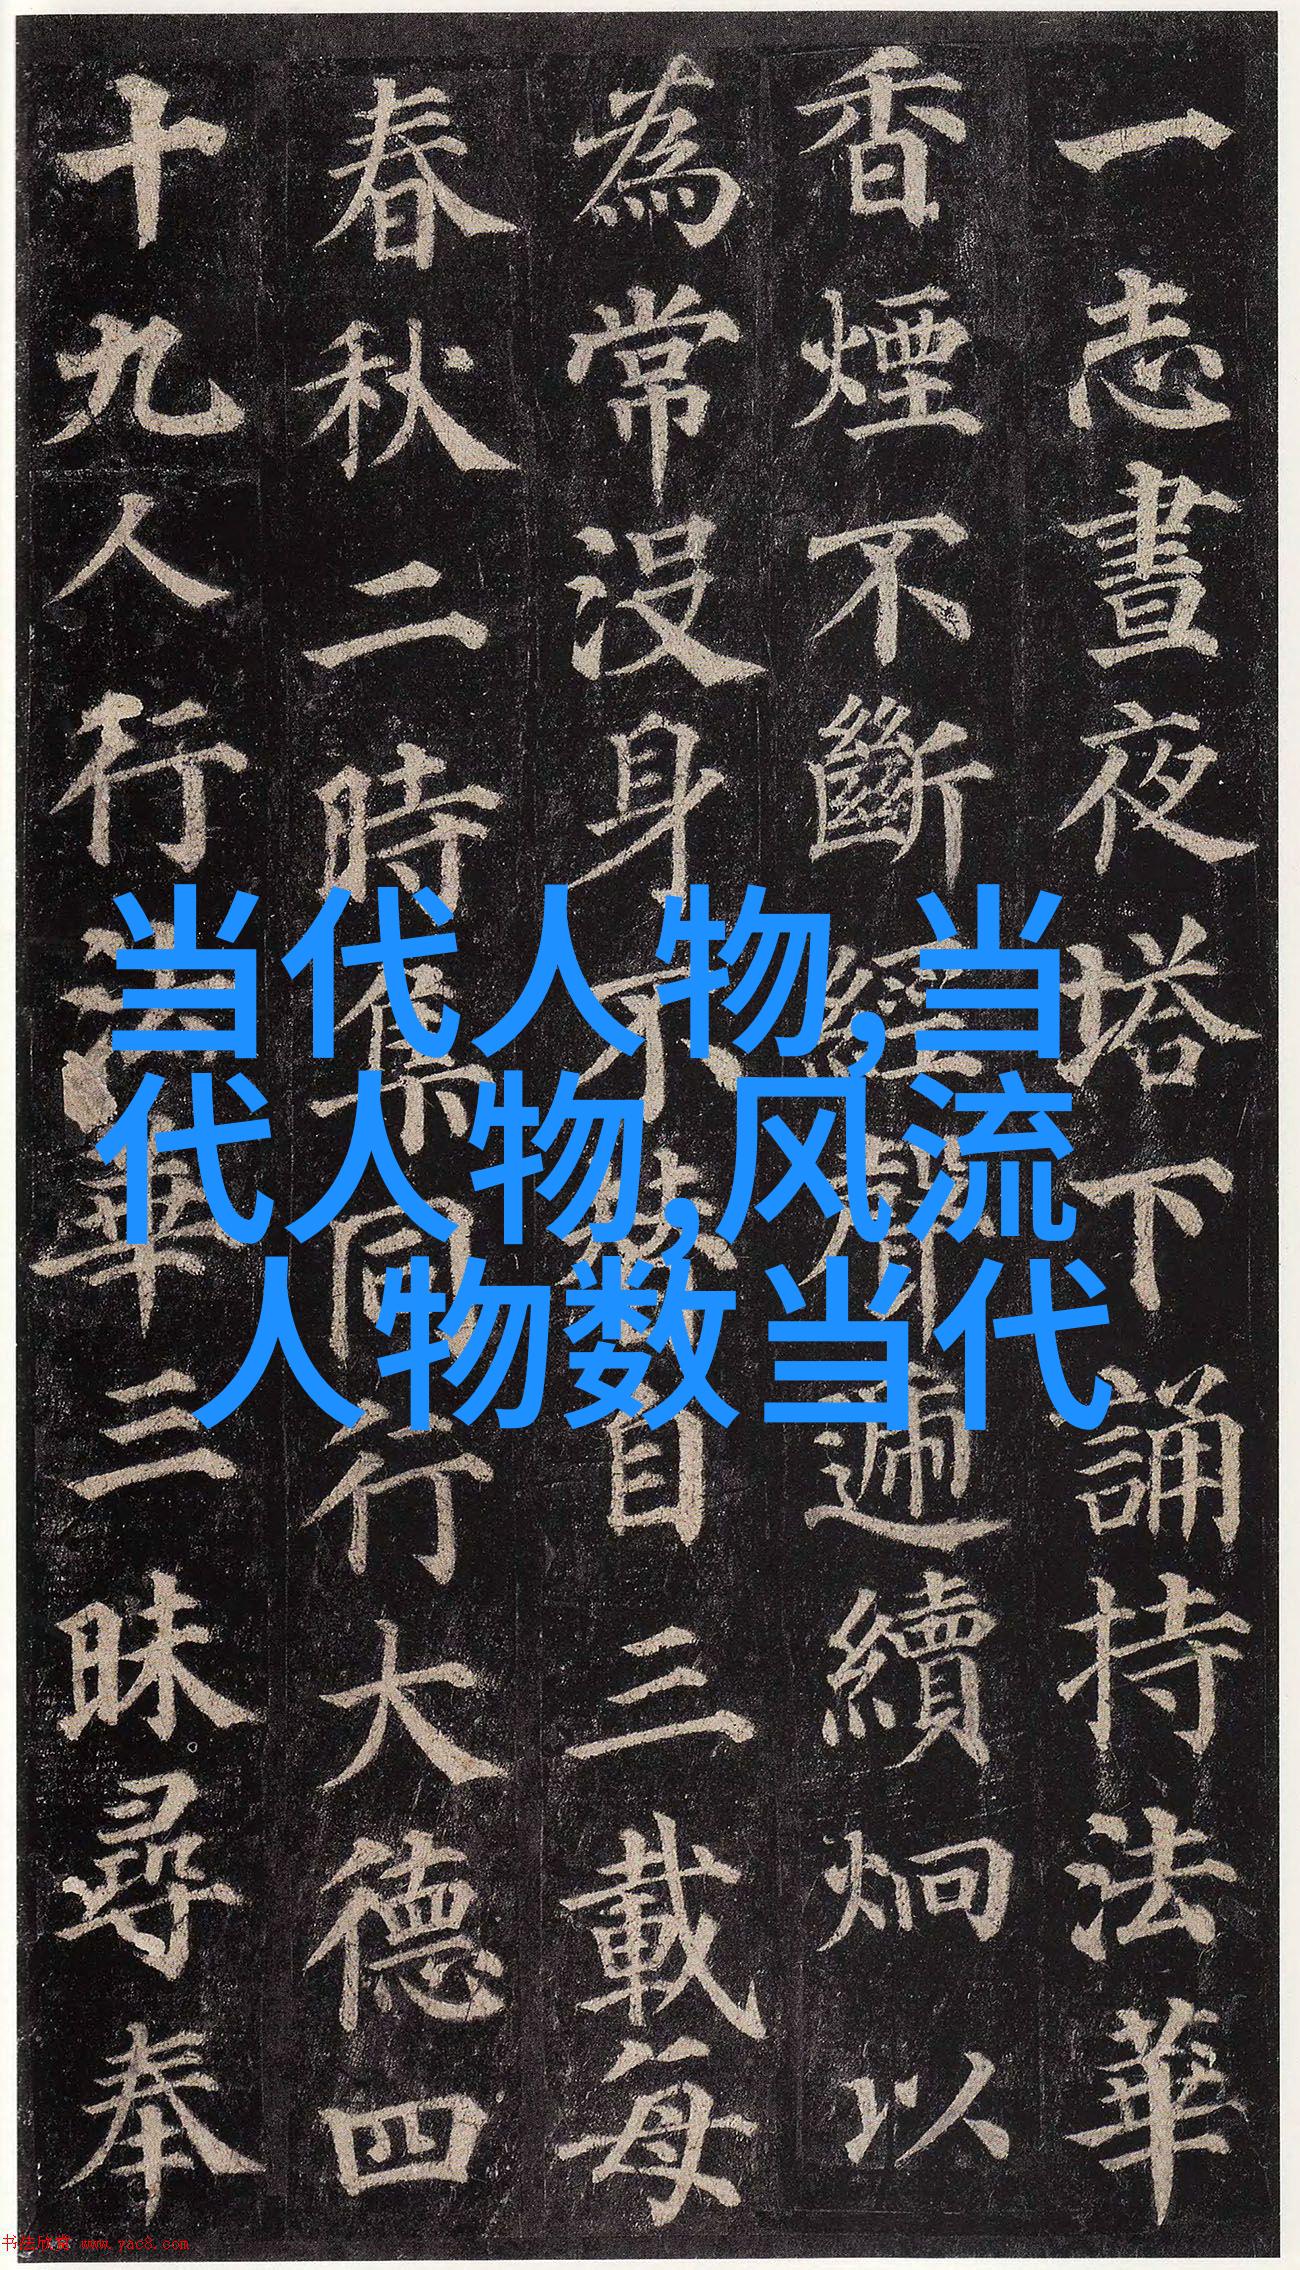 一志晝夜塔下誦持法華
香煙不斷經聲遞續炯以
為常没身不替自三載每
春秋二時集同行大德四
十九人行法華三昧尋奉
当代人物,当
代人物,风流
人物数当代
书法欣赏 www.yac8.com